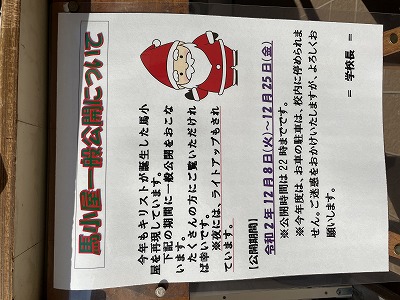 馬小屋一般公開について
今年もキリストが誕生した馬小
屋を再現しています。
下記の期間に一般公開をおこな
います。
たくさんの方にご覧いただけれ
ば幸いです。
※夜には、ライトアップもされ
ています。
【公開期間】
令和2年12月8日(火)~12月25日(金)
※公開時間は22時までです。
※今年度は、お車の駐車は、校内に停められま
せん。ご迷惑をおかけいたしますが、よろしくお
願いします。
= 学校長 =